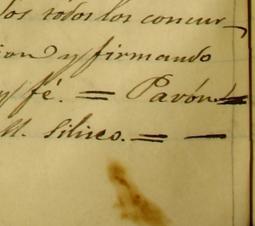 los todos los concur-
ion y firmando
y fé. = Pavón =
M. Siliseo. = —